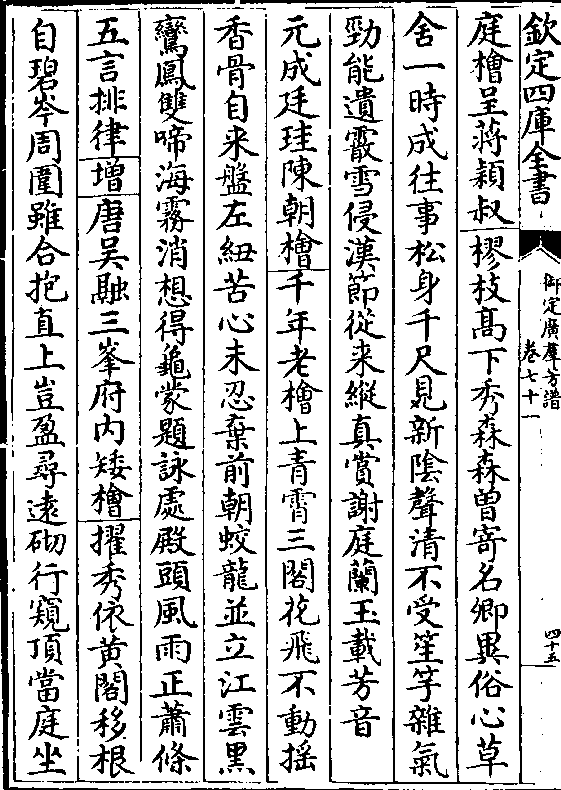 欽定四庫全書
御定廣羣芳譜
卷七十一
四十五
庭檜呈蔣穎叔樛枝高下秀森森曽寄名卿異俗心草
舍一時成往事松身千尺見新陰聲清不受笙竽雜氣
勁能遺霰雪侵漢節從来縱真賞謝庭蘭玉載芳音
元成廷珪陳朝檜千年老檜上青霄三閣花飛不動揺
香骨自来盤左紐苦心未忍棄前朝蛟龍並立江雲黒
鸞鳳雙啼海霧消想得龜蒙題詠處殿頭風雨正蕭條
五言排律增唐吴融三峯府内矮檜擢秀依黄閣移根
自碧岑周圍雖合抱直上豈盈尋逺砌行窺頂當庭坐